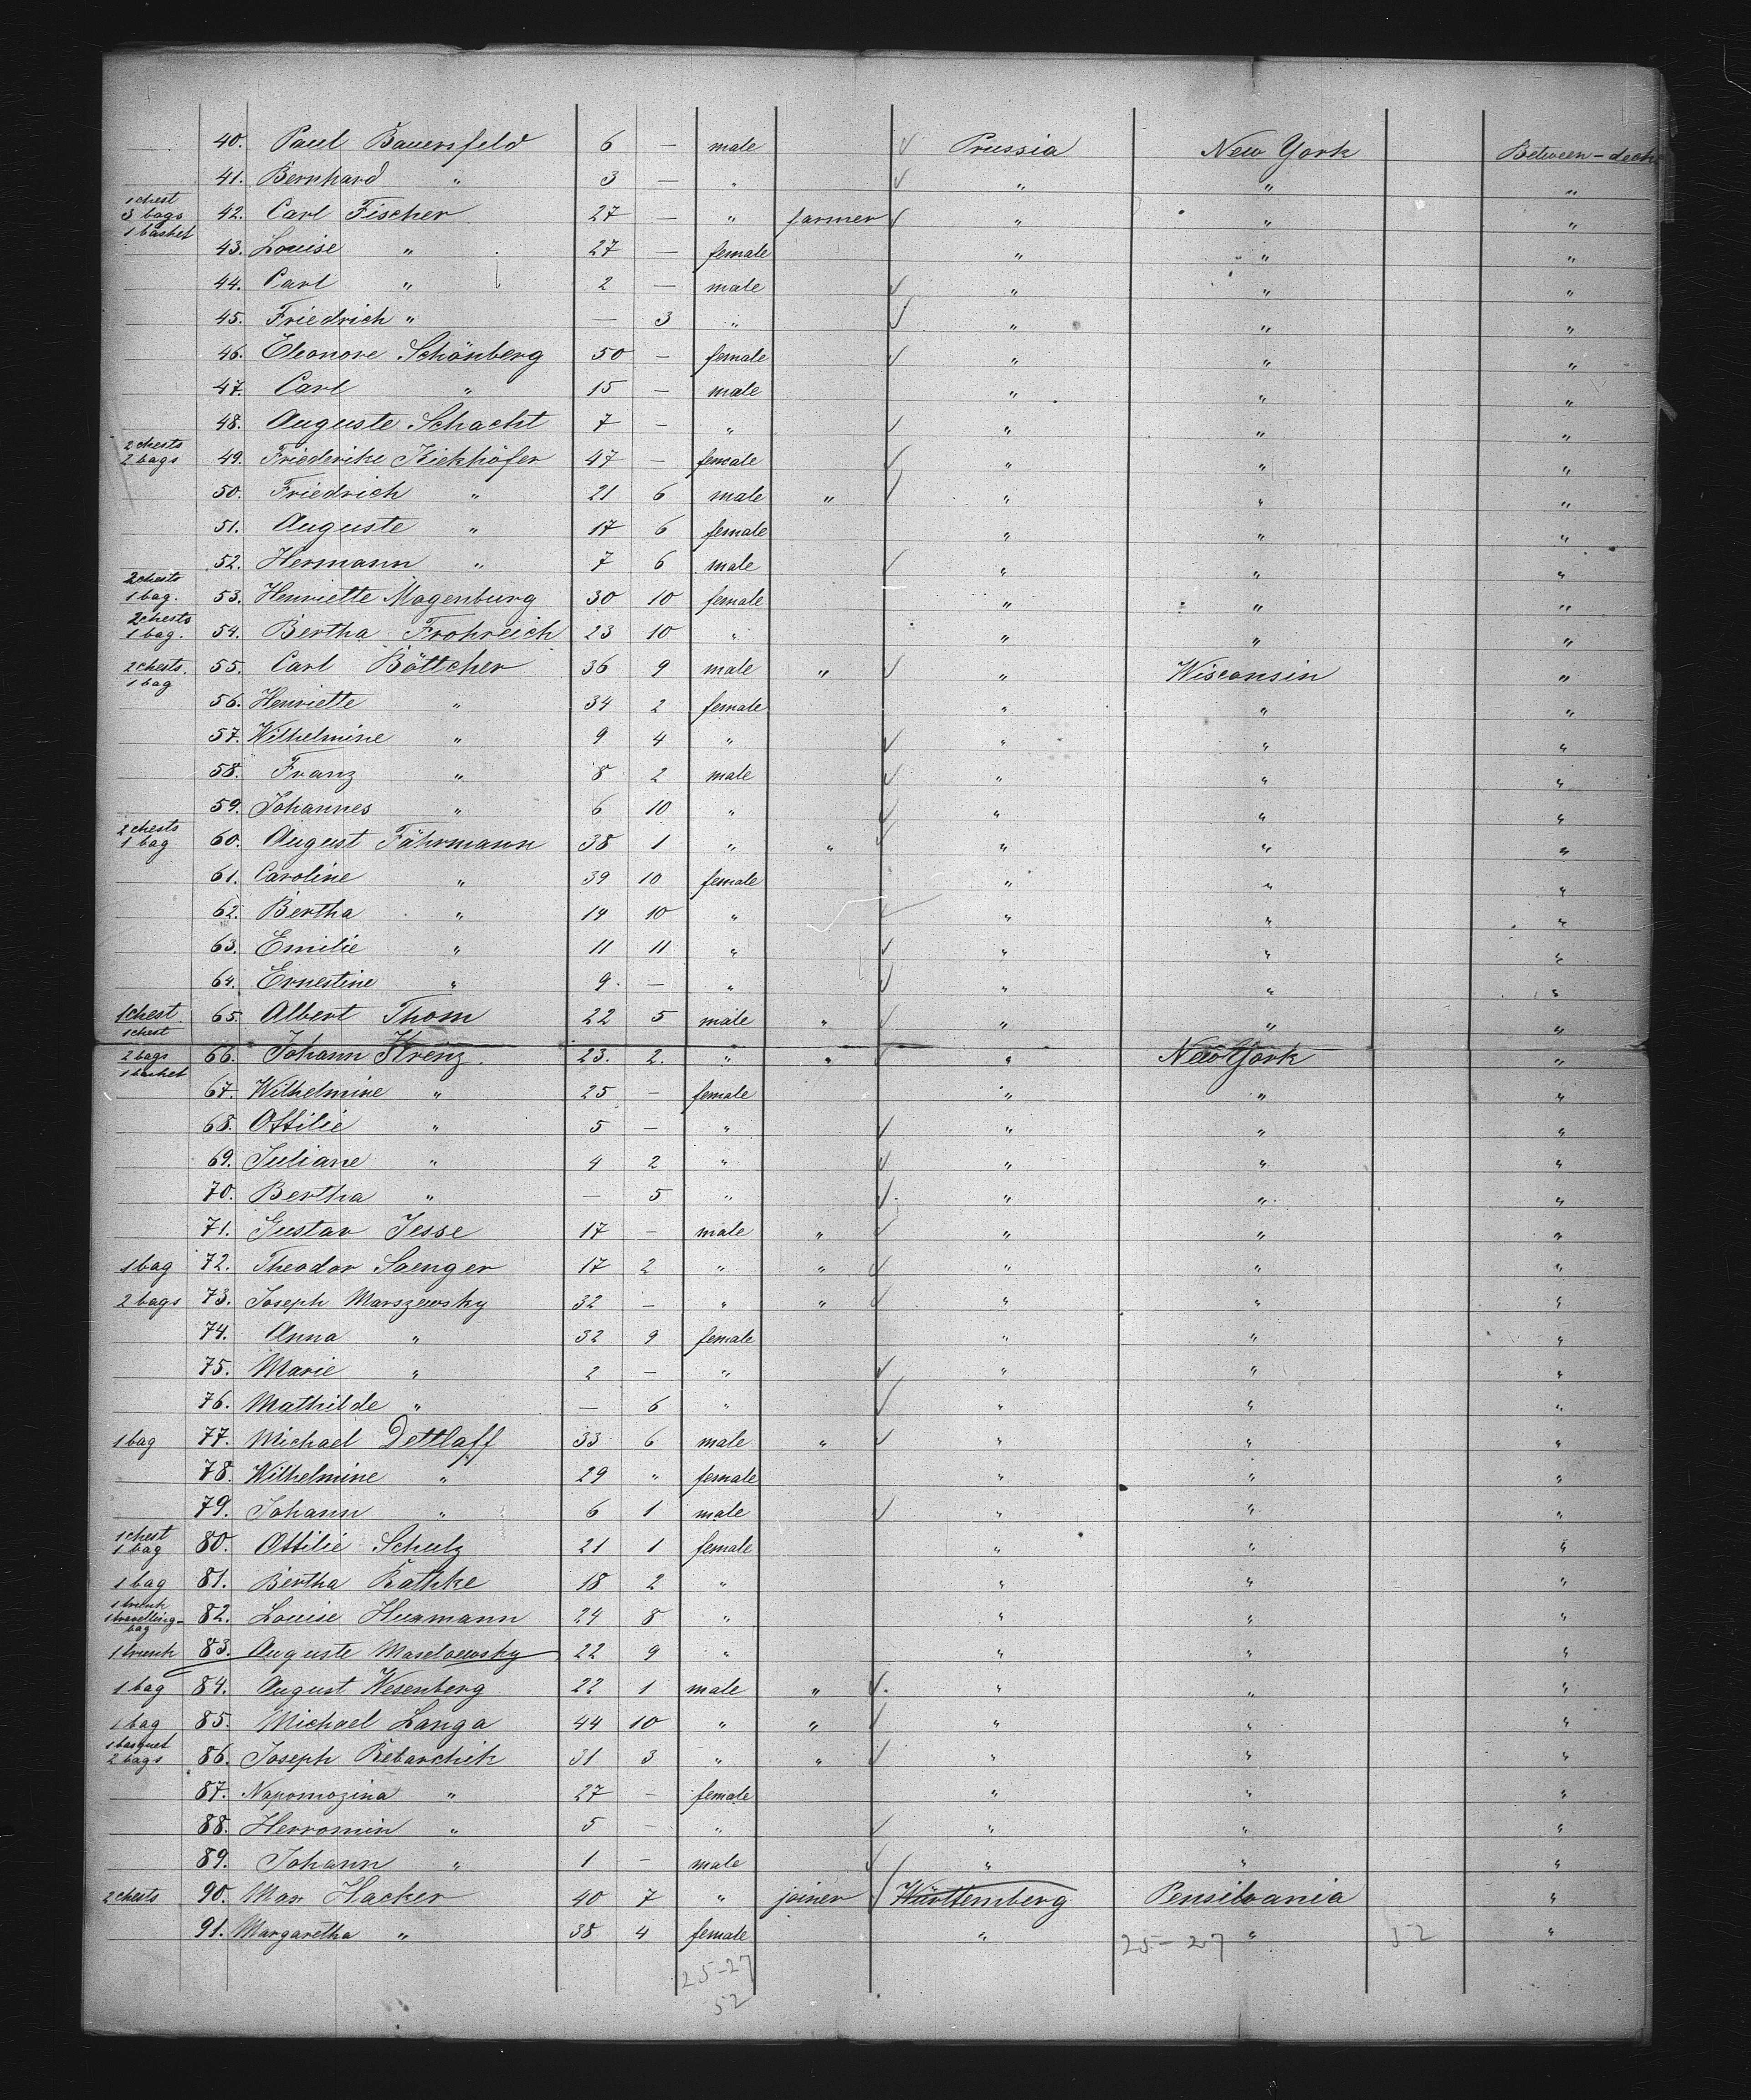 40. Paul Bauersfeld 6 — male Prussia New York Between-deck
41. Bernhard " 3 — " " " "
1 chest 3 bags 1 basket 42. Carl Fischer 27 — " farmer " " "
43. Louise " 27 — female " " "
44. Carl " 2 — male " " "
45. Friedrich " — 3 " " " "
46. Eleonore Schönberg 50 — female " " "
47. Carl " 15 — male " " "
48. Auguste Schacht 7 — " " " "
2 chests 2 bags 49. Friederike Kiekhöfer 47 — female " " "
50. Friedrich " 21 6 male " " " "
51. Auguste " 17 6 female " " "
52. Hermann " 7 6 male " " "
2 chests 1 bag. 53. Henriette Magenburg 30 10 female " " "
2 chests 1 bag. 54. Bertha Frohreich 23 10 " " " "
2 chests. 1 bag 55. Carl Böttcher 36 9 male " " Wisconsin "
56. Henriette " 34 2 female " " "
57. Wilhelmine " 9 4 " " " "
58. Franz " 8 2 male " " "
59. Johannes " 6 10 " " " "
2 chests 1 bag 60. August Fährmann 38 1 " " " " "
61. Caroline " 39 10 female " " "
62. Bertha " 14 10 " " " "
63. Emilie " 11 11 " " " "
64. Ernestine " 9. — " " " "
1 chest 65. Albert Thom 22 5 male " " " "
1 chest 2 bags 1 basket 66. Johann Krenz. 23. 2. " " " New York "
67. Wilhelmine " 25 — female " " "
68. Ottilie " 5 — " " " "
69. Juliane " 4 2 " " " "
70. Bertha " — 5 " " " "
71. Gustav Jesse 17 — male " " " "
1 bag 72. Theodor Saenger 17 2 " " " " "
2 bags 73. Joseph Marszewsky 32 — " " " " "
74. Anna " 32 9 female " " "
75. Marie " 2 — " " " "
76. Mathilde " — 6 " " " "
1 bag 77. Michael Dettlaff 33 6 male " " " "
78. Wilhelmine " 29 " female " " "
79. Johann " 6 1 male " " "
1 chest 1 bag 80. Ottilie Schulz 21 1 female " " "
1 bag 81. Bertha Rathke 18 2 " " " "
1 trunk 1 travelling-bag 82. Louise Huxmann 24 8 " " " "
1 trunk 83. Auguste Maselaewsky 22 9 " " " "
1 bag 84. August Wesenberg 22 1 male " " " "
1 bag 85. Michael Langa 44 10 " " " " "
1 basquet 2 bags 86. Joseph Rebarchik 31 3 " " " " "
87. Napomozina " 27 — female " " "
88. Herromin " 5 — " " " "
89. Johann " 1 — male " " "
2 chests 90. Max Hacker 40 7 " joiner Württemberg Pensilvania "
91. Margaretha " 38 4 female " " "
25-27 52
25-27
52